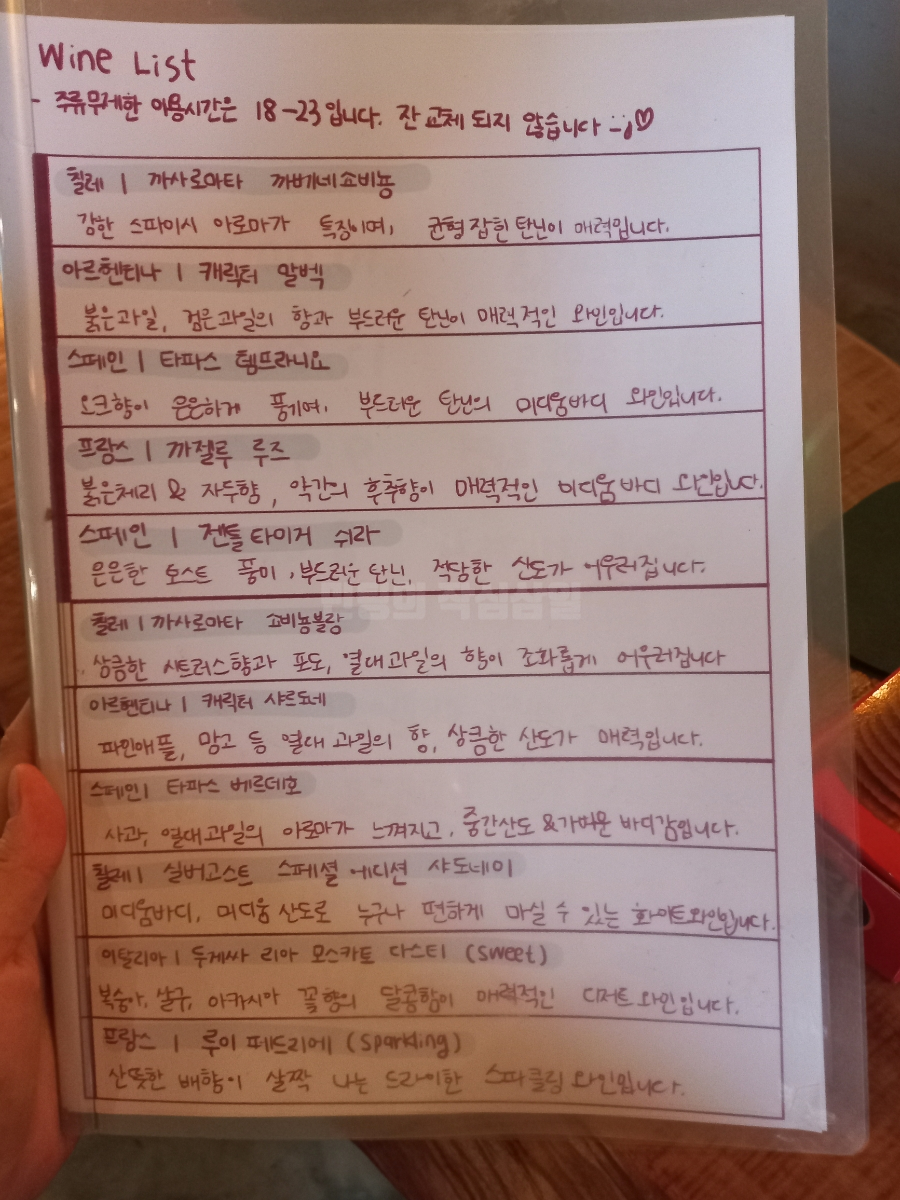 Wine List
- 주류무제한 이용시간은 18-23입니다. 잔 교체 되지 않습니다
칠레 | 까사로마타 까베네쇼비뇽
강한 스파이시 아로마가 특징이며, 균형 잡힌 탄닌이 매력입니다.
아르헨티나 | 캐릭터 말벡
붉은과일, 검은과일의 향과 부드러운 탄닌이 매력적인 와인입니다.
스페인 | 타파스 템프라니요
오크향이 은은하게 풍기며, 부드러운 탄닌의 미디움바디 와인입니다.
프랑스 | 까젤루 루즈
붉은체리 & 자두향, 약간의 후추향이 매력적인 미디움바디 와인입니다.
스페인 | 젠틀타이거 쉬라
은은한 토스트 풍미, 부드러운 탄닌, 적당한 산도가 어우러집니다.
칠레 | 까사로마타 쇼비뇽블랑
상큼한 시트러스향과 포도, 열대과일의 향이 조화롭게 어우러집니다
아르헨티나 | 캐릭터 샤르도네
파인애플, 망고 등 열대 과일의 향, 상큼한 산도가 매력입니다.
스페인 | 타파스 베르데호
사과, 열대과일의 아로마가 느껴지고, 중간산도 & 가벼운 바디감입니다.
칠레 | 실버고스트 스페셜 에디션 샤도네이
미디움바디, 미디움 산도로 누구나 편하게 마실 수 있는 화이트와인입니다.
이탈리아 | 두게싸 리아 모스카토 다스티 (Sweet)
복숭아, 살구, 아카시아 꽃향의 달콤함이 매력적인 디저트와인입니다.
프랑스 | 루이 페드리에 (Sparkling)
산뜻한 배향이 살짝 나는 드라이한 스파클링 와인입니다.